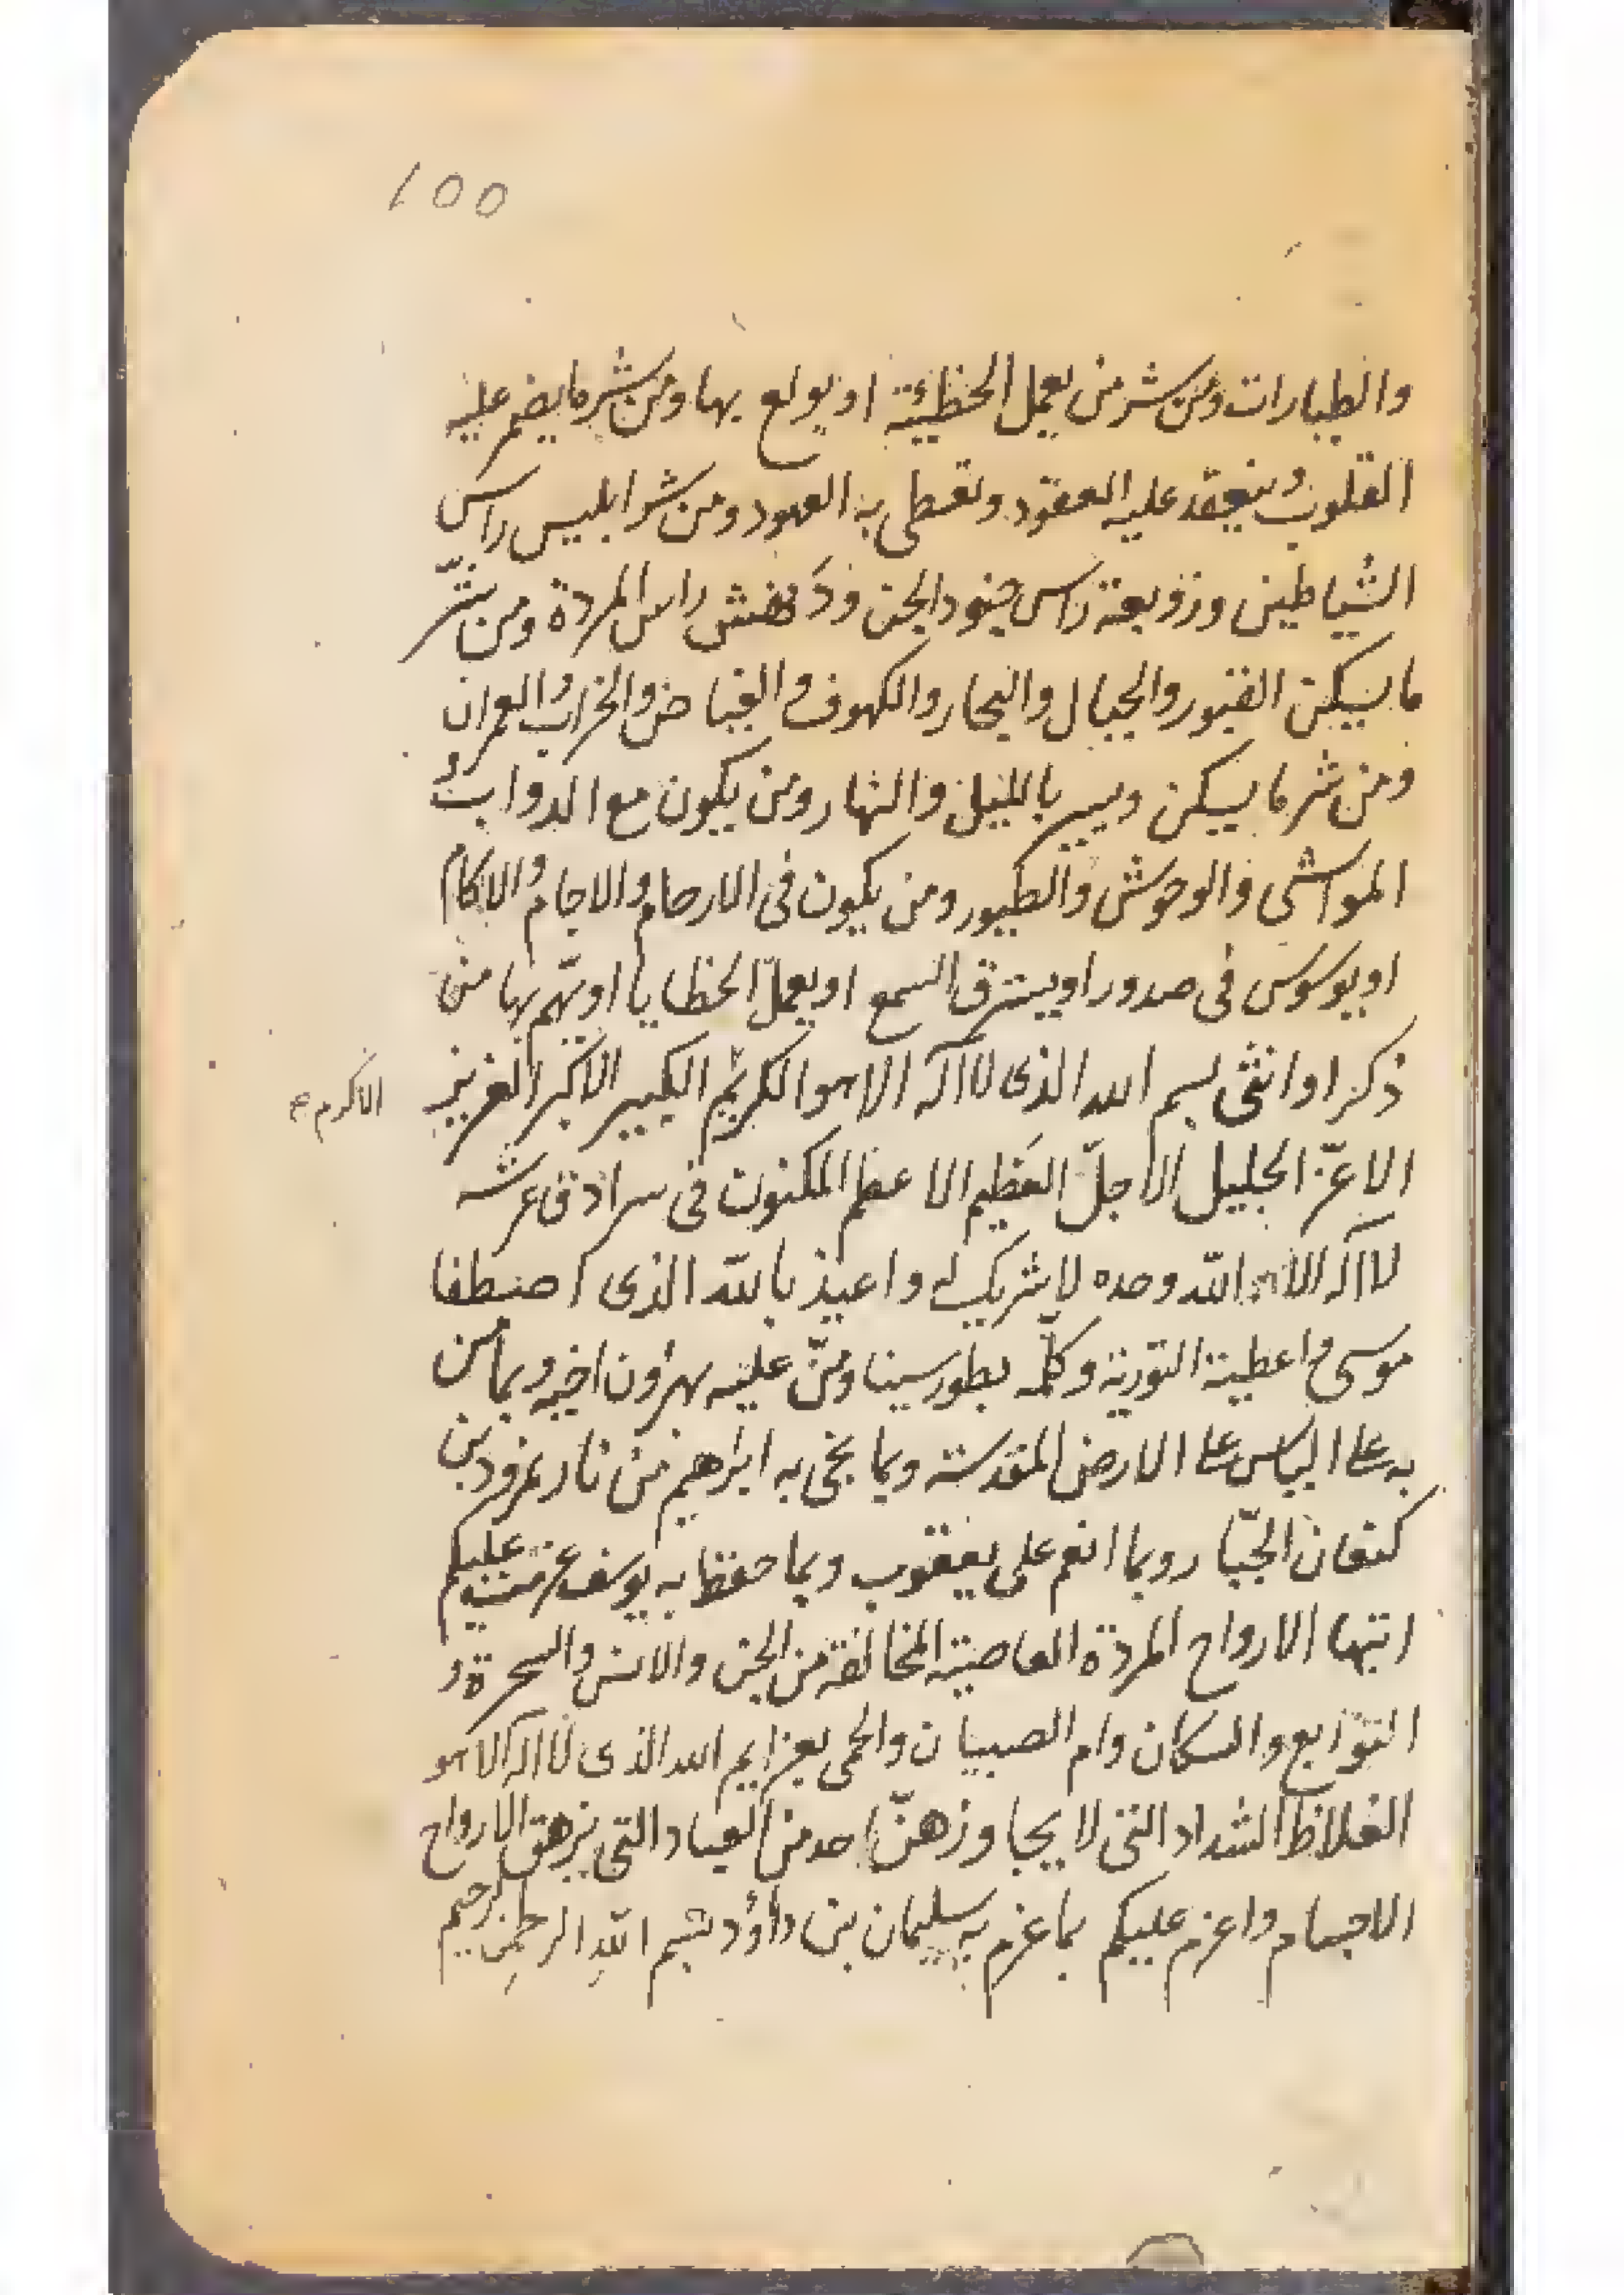 ١٥٥
والطيارات ومن شر من يعمل الخطيئة او يولع بها ومن شر ما يضمر عليه
القلوب وينعقد عليه العقود وتعطى به العهود ومن شر ابليس راس
الشياطين وزوبعة راس جنود الجن و راس المردة ومن شر
ما يسكن القبور والجبال والبحار والكهوف والغياض والخراب والعمران
ومن شر ما يسكن ويسير بالليل والنهار ومن يكون مع الدواب و
المواشى والوحوش والطيور ومن يكون فى الارحام والاجام والاكام
او يوسوس فى صدور او يسترق السمع او يعمل الخطايا او يهم بها من
ذكر او انثى بسم الله الذى لا اله الا هو الكريم الكبير الاكبر العزيز
الاكرم
الاعزّ الجليل الاجلّ العظيم الاعظم المكنون فى سرادق عرشه
لا اله الا الله وحده لا شريك له واعيذ بالله الذى اصطفا
موسى واعطيه التورية وكلّمه بطور سينا ومنّ عليه بهرون اخيه وبما من
به على الياس على الارض المقدسة وبما نجى به ابرهيم من نار نمرود بن
كنعان الجبّار وبما انعم على يعقوب وبما حفظ به يوسف عزمت عليكم
ايتها الارواح المردة العاصية المخالفة من الجن والانس والسحرة و
التوابع والسكان وام الصبيان والحمى بعزايم الله الذى لا اله الا هو
الغلاظ الشداد التى لا يجاوزهنّ احد من العباد التى يزهق الارواح
الاجسام واعزم عليكم بما عزم به سليمان بن داؤد بسم الله الرحمن الرحيم